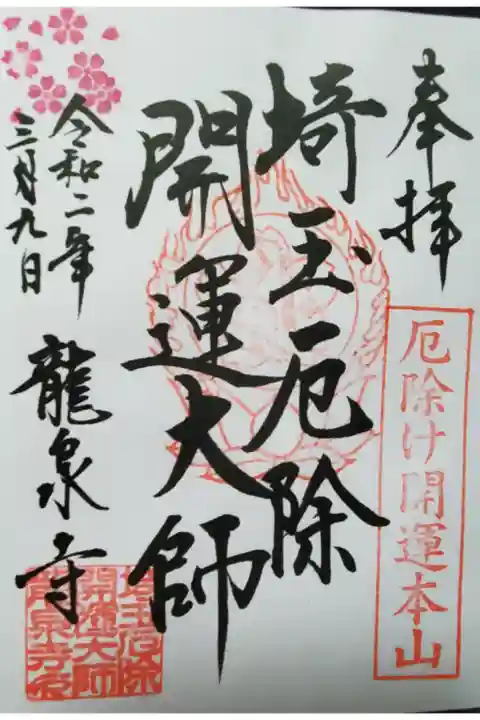 奉拝
厄除け開運本山
埼玉厄除
開運大師
令和二年
三月九日
龍泉寺
埼玉厄除
開運大師
龍泉寺印